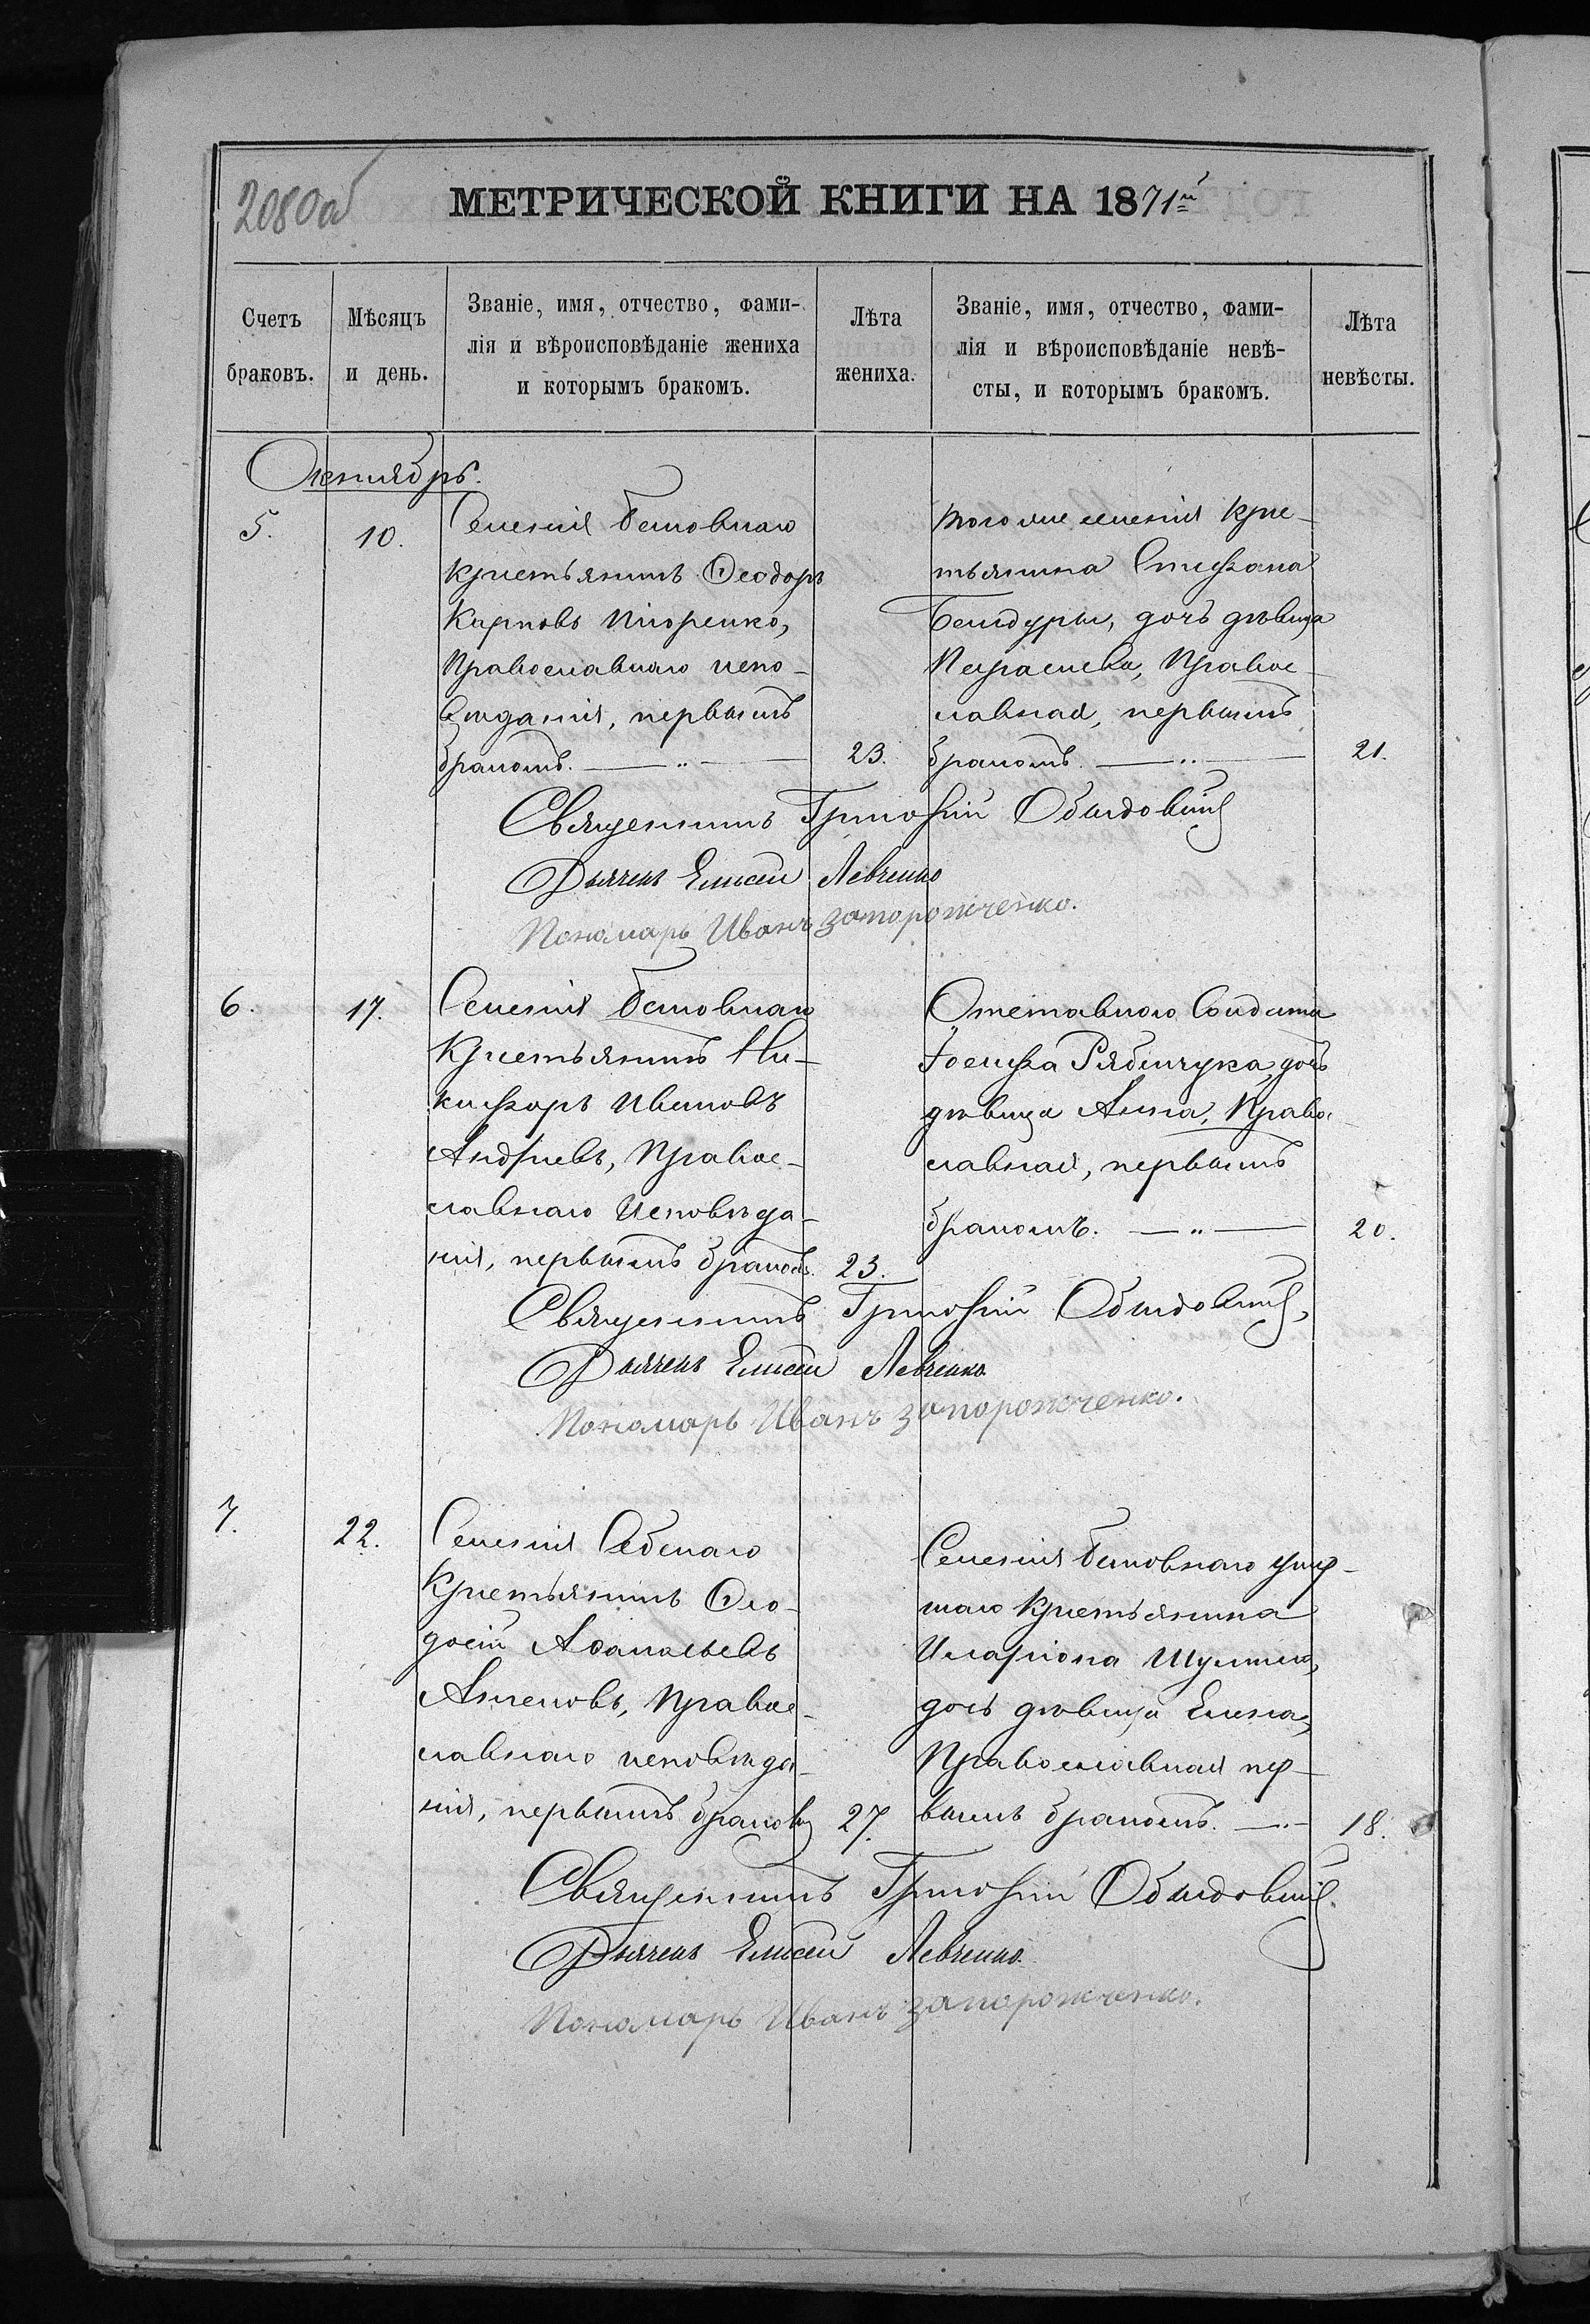 2080об
МЕТРИЧЕСКОЙ КНИГИ НА 1871й
Счетъ браковъ.
Мѣсяцъ и день.
Званіе, имя, отчество, фами-
лія и вѣроисповѣданіе жениха
и которымъ бракомъ.
Лѣта жениха.
Званіе, имя, отчество, фами-
лія и вѣроисповѣданіе невѣ-
сты, и которымъ бракомъ.
Лѣта невѣсты.
Октябрь.
5.
10.
Селенія
крестьянинъ Ѳеодоръ
Карповъ
Православнаго испо-
вѣданія, первымъ
бракомъ.
23.
того же селенія кре-
стьянина Стефана
Бандуры, дочь дѣвица
Параскева, Правос-
лавная, первымъ
бракомъ.
21.
Священникъ Григорій
Дьячекъ Елисей Левченко
Пономарь Иванъ Запорожченко.
6.
17.
Селенія
Крестьянинъ Ни-
кифоръ Ивановъ
Андріевъ, Правос-
лавнаго Исповѣда-
нія, первымъ бракомъ.
23.
Отставного Солдата
Іосифа Рябчука, дочь
дѣвица Анна, Право-
славная, первымъ
бракомъ.
20.
Священникъ Григорій
Дьячекъ Елисей Левченко
Пономарь Иванъ Запорожченко.
7.
22.
Селенія
Крестьянинъ Ѳео-
досій Аѳанасьевъ
Правос-
лавнаго исповѣда-
нія, первымъ бракомъ
27.
Селенія умер-
шаго Крестьянина
Иларіона
дочь дѣвица Елена,
Православная пер-
вымъ бракомъ.
18.
Священникъ Григорій
Дьячекъ Елисей Левченко.
Пономарь Иванъ Запорожченко.